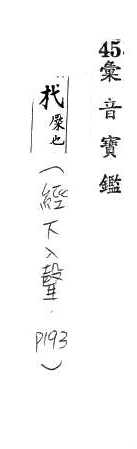 45.彙音寶鑑
杙 橜也
(經下入聲.P193)